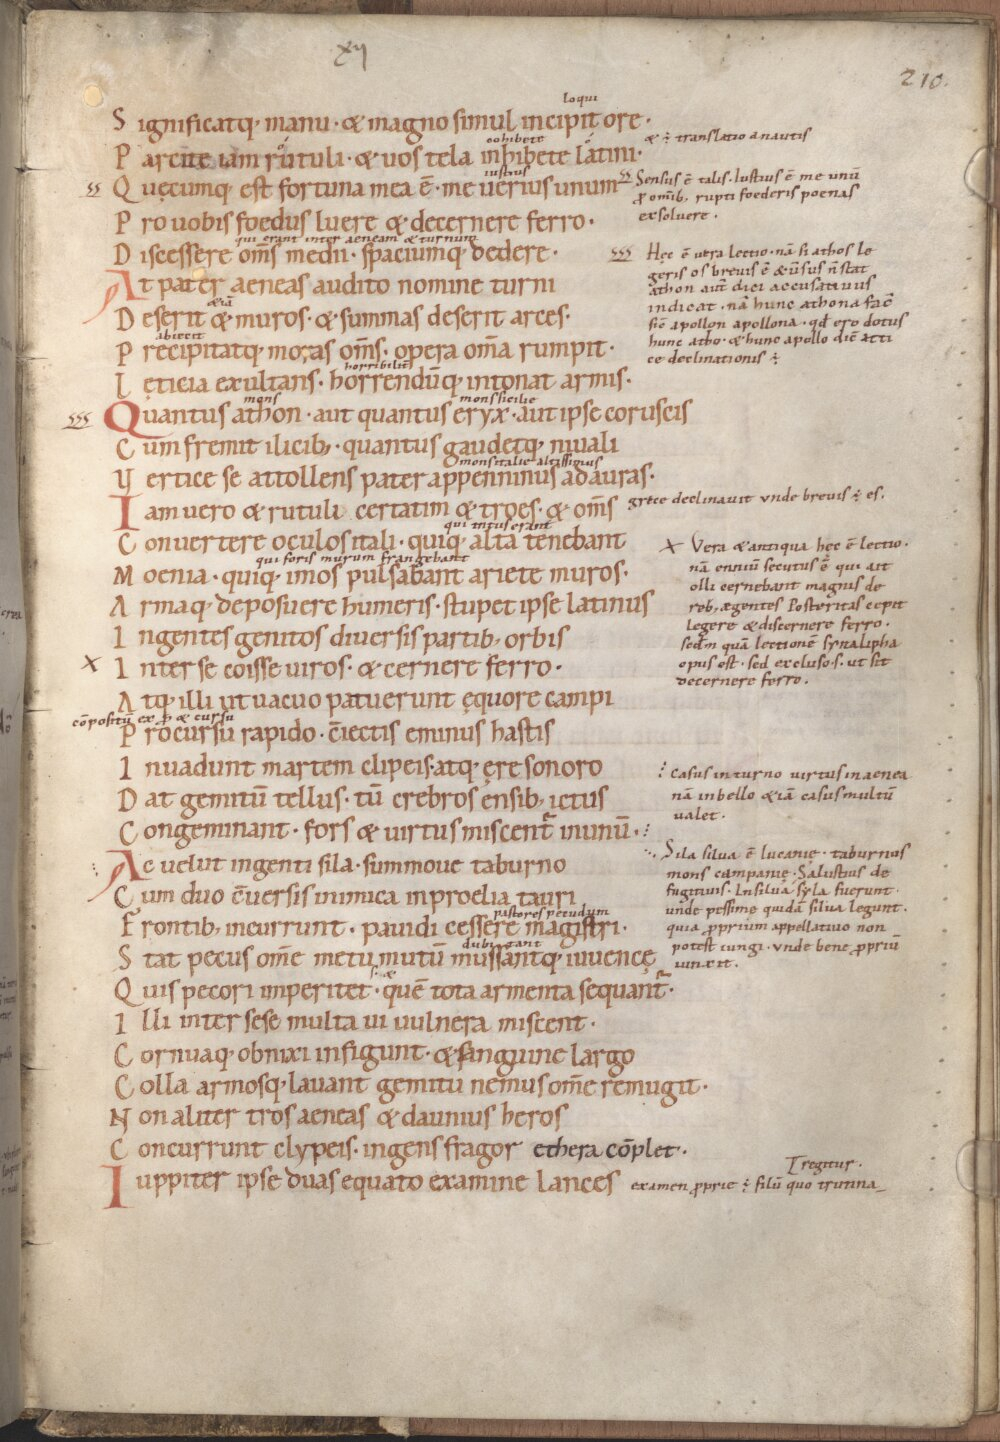 xij
210.
loqui
Significatq; manu · & magno simul incipit ore ·
cohibete
& ÷ translatio a nautis
Parcite iam rutuli · & uos tela inhibete latini ·
iustius
Quęcumq; est fortuna mea ē · me uerius unum
Sensus ē talis. Iustius ē me unū
ꝓ omīb, rupti foederis poenas
exsoluere .
Pro uobis foedus luere & decernere ferro ·
qui erant inter aeneam & turnum
Discessere om̄s medii · spaciumq; dedere ·
Hęc ē uera lectio · nā si athos le
geris os breuis ē & ūsus n̄ stat
athon aut̄ dici accusatiuus
indicat . nā hunc athona facē
sic̄ apollon apollona . qđ ero dotus
hunc atho . & hunc apollo diē atti
cę declinationis ÷
At pater aeneas audito nomine turni
&iā
Deserit & muros · & summas deserit arces ·
abiecit
Precipitatq; moras om̄s · opera om̄a rumpit ·
horribiliter
Lęticia exultans · horrendūq; intonat armis ·
mons
mons sicilie
Quantus athon · aut quantus eryx · aut ipse coruscis
Cum fremit ilicib; · quantus gaudetq; niuali
mons italie altissimus
Vertice se attollens pater appenninus ad auras ·
grece declinauit vnde breuis ÷ es.
Iam uero & rutuli certatim & troes · & om̄s
qui intus erant
Conuertere oculos itali · quiq; alta tenebant
qui foris murum frangebant
Moenia · quiq; imos pulsabant ariete muros ·
x Vera & antiqua hęc ē lectio .
nā enniū secutus ē qui ait
olli cernebant magnis de
reb, ęgentes Posteritas cepit
legere & discernere ferro .
sedm̄ quā lectionē synalipha
opus est . sed excluso .s. ut sit
decernere ferro .
Armaq; deposuere humeris · stupet ipse latinus
Ingentes genitos diuersis partib; orbis
x Inter se coisse uiros · & cernere ferro ·
Atq; illi ut uacuo patuerunt ęquore campi
cōpositū ex ꝓ & cursu
Procursu rapido · c̄iectis eminus hastis
Inuadunt martem clipeis · atq; ęre sonoro
Casus in turno virtus in aenea
nā in bello &iā casus multū
ualet .
Dat gemitū tellus · tū crebros ensib; ictus
Congeminant · fors & uirtus miscent̄ in unū ·
Sila silua ē lucanię . taburnus
mons campanię . Salustius de
fugitiuis . In silua syla fuerunt .
unde pessime quidā silua legunt .
quia ꝓprium appellatiuo non
potest iungi . vnde bene ꝓpriū
iunxit .
Ac uelut ingenti sila · summoue taburno
Cum duo c̄uersis inimica in proelia tauri
pastores pecudum
Frontib; incurrunt · pauidi cessere magistri ·
dubitant
Stat pecus om̄e metu mutū mussantq; iuuencę
Quis pecori imperitet · quē tota armenta sequant̄ ·
Illi inter sese multa ui uulnera miscent ·
Cornuaq; obnixi infigunt · & sanguine largo
Colla armosq; lauant gemitu nemus om̄e remugit ·
Non aliter tros aeneas & daunius heros
Concurrunt clypeis · ingens fragor ethera cōplet ·
regitur .
Iuppiter ipse duas equato examine lances
examen ꝓprie ÷ filū quo trutina